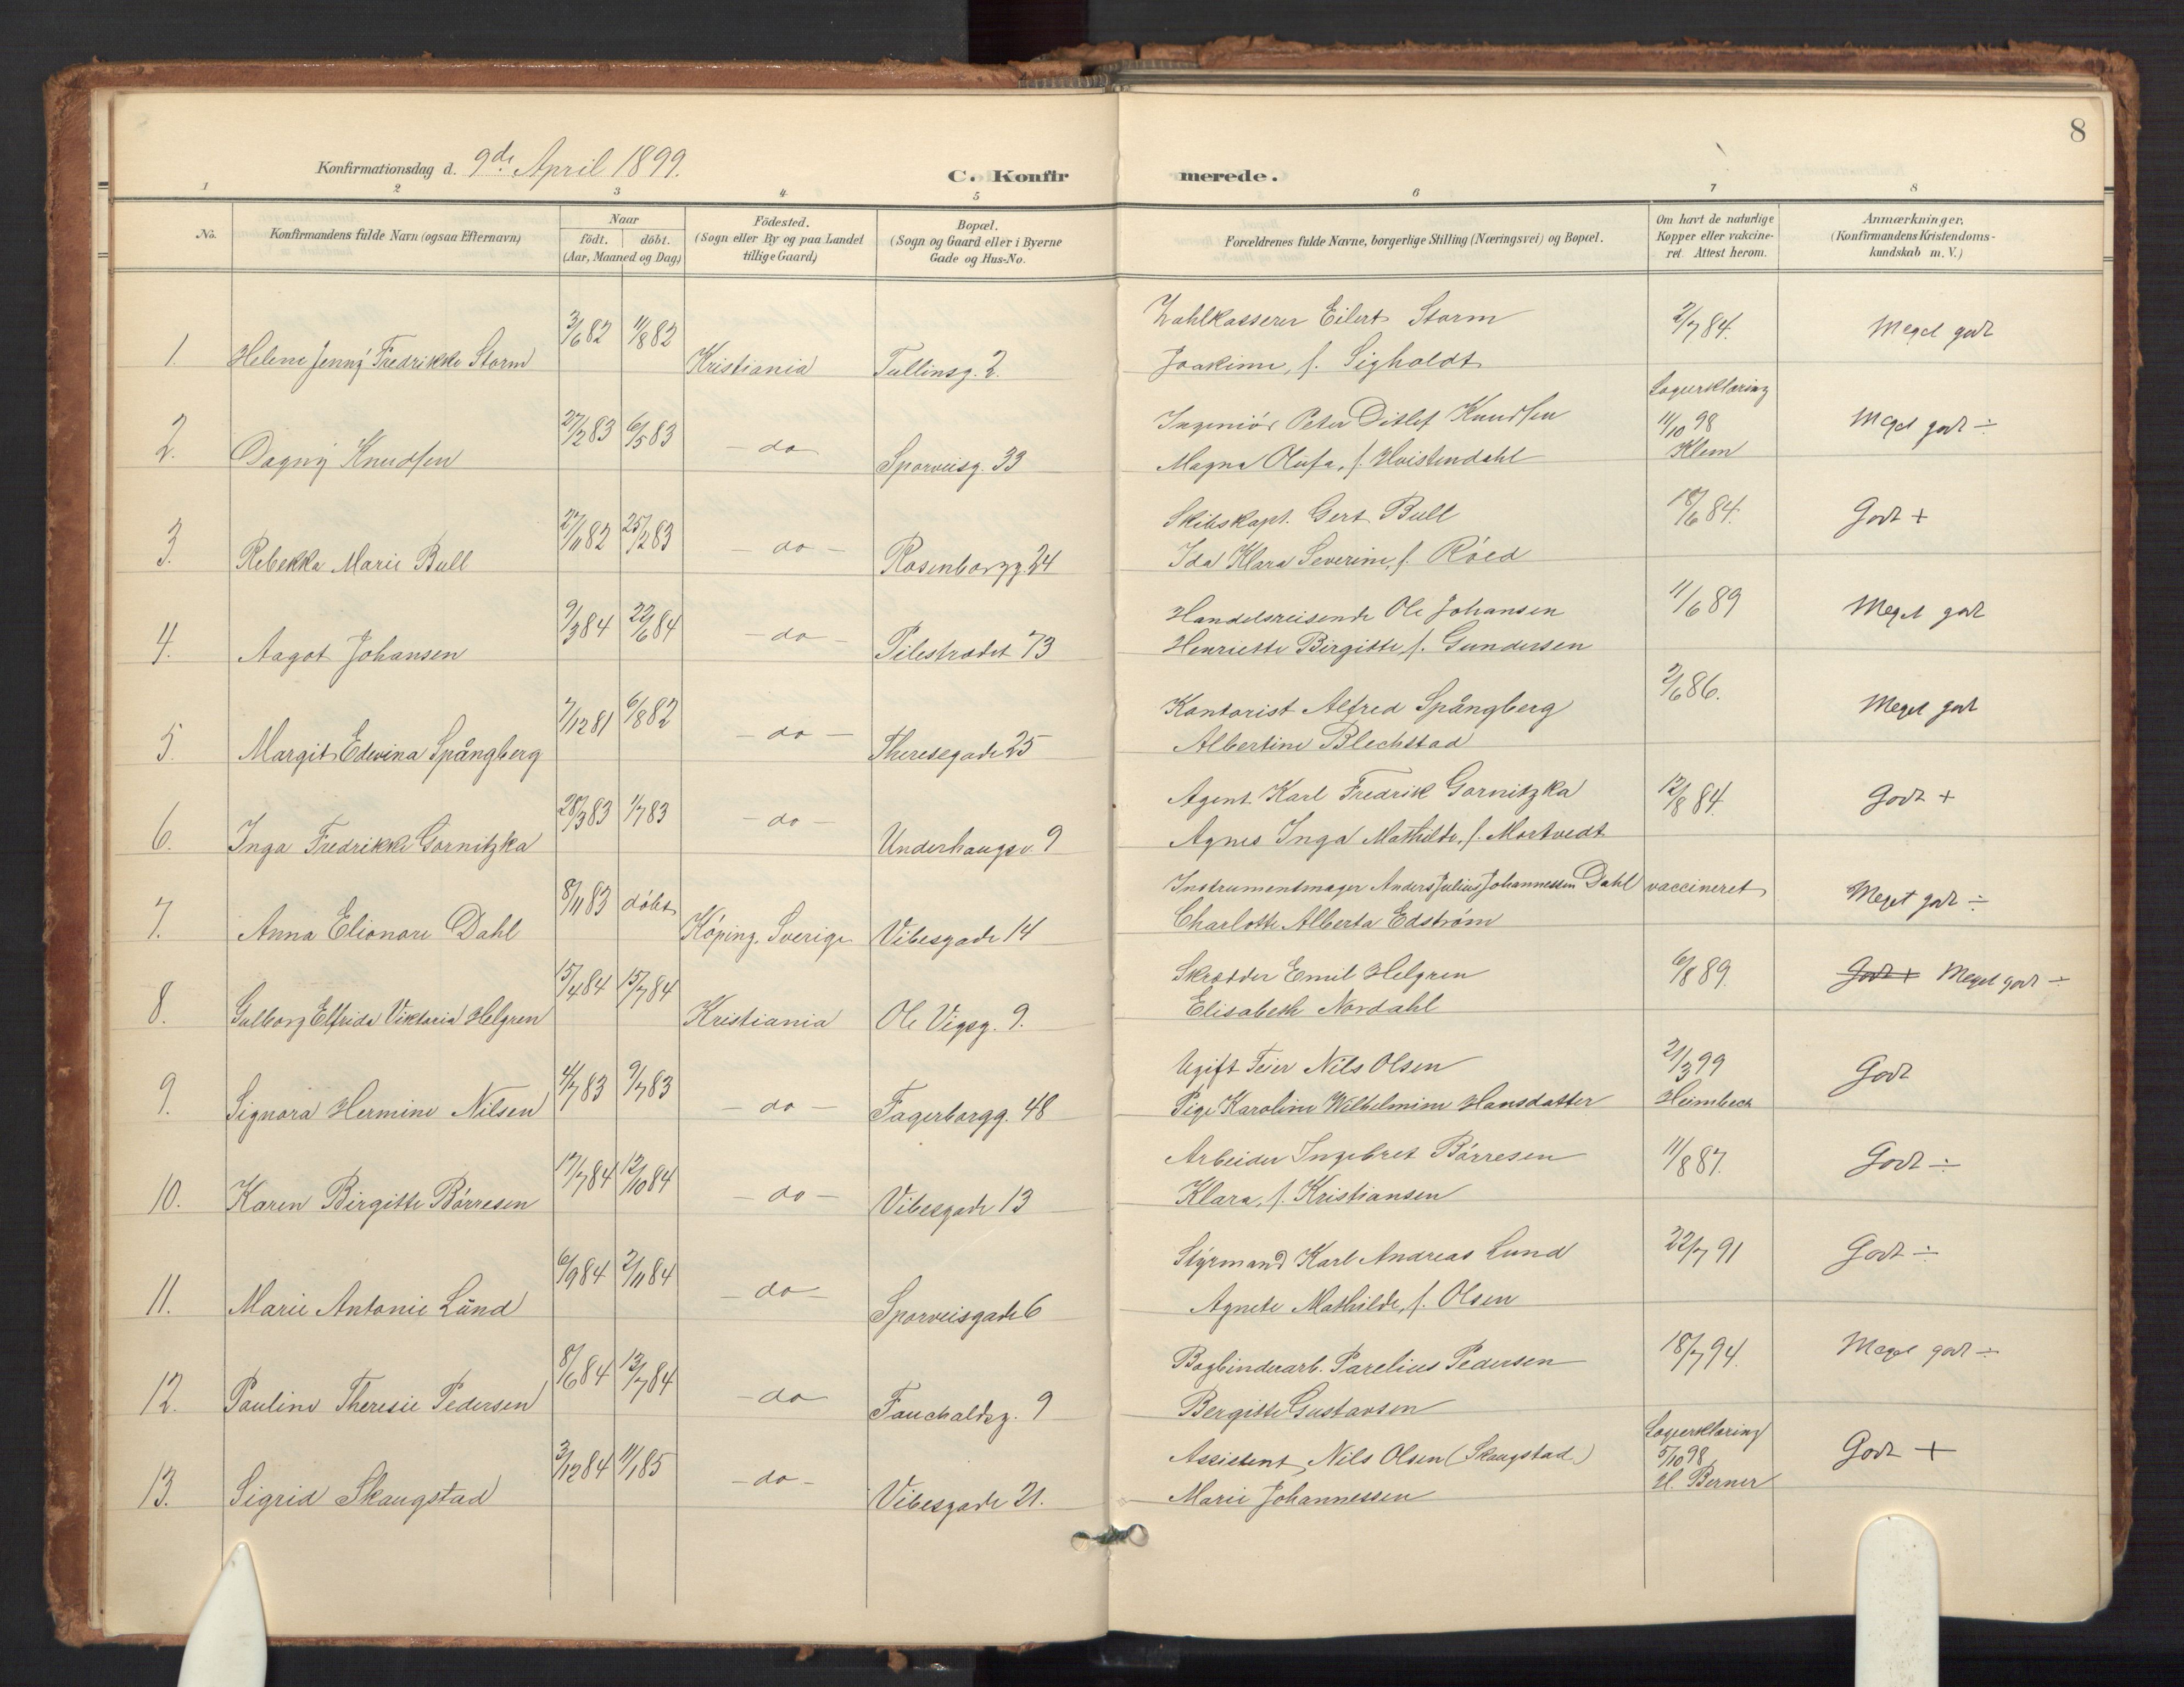 8
Konfirmationsdag d. 9de April 1899.
C. Konfirmerede.
1 2 3 4 5 6 7 8
No. Konfirmandens fulde Navn (ogsaa Efternavn) Naar födt. döbt. (Aar, Maaned og Dag) Födested. (Sogn eller By og paa Landet tillige Gaard) Bopæl. (Sogn og Gaard eller i Byerne Gade og Hus-No. Forældrenes fulde Navne, borgerlige Stilling (Næringsvei) og Bopæl. Om havt de naturlige Kopper eller vakcineret Attest herom. Anmærkninger. (Konfirmandens Kristendomskundskab m. V.)
1. Helene Jenny Fredrikke Storm 3/6 82 11/8 82 Kristiania Tullinsg. 2. Zahlkasserer Eilert Storm 2/7 84. Meget godt
Joakime, f. Sigholdt
2. Dagny Knudsen 27/2 83 6/5 83 - do Sporveisg. 33 Ingeniör Peter Ditlef Knudsen Lægeerklæring 11/10 98 Klem Meget godt ÷
Magna Olufa, f. Hvistendahl
3. Rebekka Marie Bull 27/11 82 25/2 83 - do - Rosenborgg. 24 Skibskapt. Gert Bull 18/6 84. Godt +
Ida Klara Severine, f. Röed
4. Aagot Johansen 9/3 84 22/6 84 - do - Pilestrædet 73 Handelsreisende Ole Johansen 11/6 89 Meget godt
Henriette Birgitte, f. Gundersen
5. Margit Edevina Spångberg 7/12 81 6/8 82 - do - Theresegade 25 Kontorist Alfred Spångberg 2/6 86. Meget godt
Albertine Blechstad
6. Inga Fredrikke Gornitzka 28/3 83 1/7 83 - do - Underhaugsv. 9 Agent Karl Fredrik Gornitzka 12/8 84. Godt +
Agnes Inga Mathilde, f. Mortvedt
7. Anna Elionore Dahl 8/11 83 döbt Köping, Sverige Vibesgade 14 Instrumentmager Anders Julius Johannessen Dahl vaccineret Meget godt ÷
Charlotte Alberta Edström
8. Gulborg Elfrida Viktoria Helgren 15/4 84 15/7 84 Kristiania Ole Vigsg. 9. Skrædder Emil Helgren 6/8 89. Godt + Meget godt ÷
Elisabeth Nordahl
9. Signora Hermine Nilsen 4/7 83 9/7 83 - do - Fagerborgg. 48 Ugift Feier Nils Olsen 21/3 99 Heimbeck Godt
Pige Karoline Wilhelmine Hansdatter
10. Karen Birgitte Börresen 17/7 84 12/10 84 - do - Vibesgade 13 Arbeider Ingebret Börresen 11/8 87. Godt ÷
Klara, f. Kristiansen
11. Marie Antonie Lund 6/9 84 2/11 84 - do - Sporveisgade 6 Styrmand Karl Andreas Lund 22/7 91 Godt ÷
Agnete Mathilde, f. Olsen
12. Pauline Theresie Pedersen 8/6 84 13/7 84 - do Fauchaldsg. 9 Bogbinderarb. Parelius Pedersen 18/7 94. Meget godt ÷
Bergitte Gustavsen
13. Sigrid Skaugstad 3/12 84 11/1 85 - do - Vibesgade 21. Assistent, Nils Olsen (Skaugstad.) Lægeerklæring 5/10 98 H. Berner Godt +
Marie Johannessen